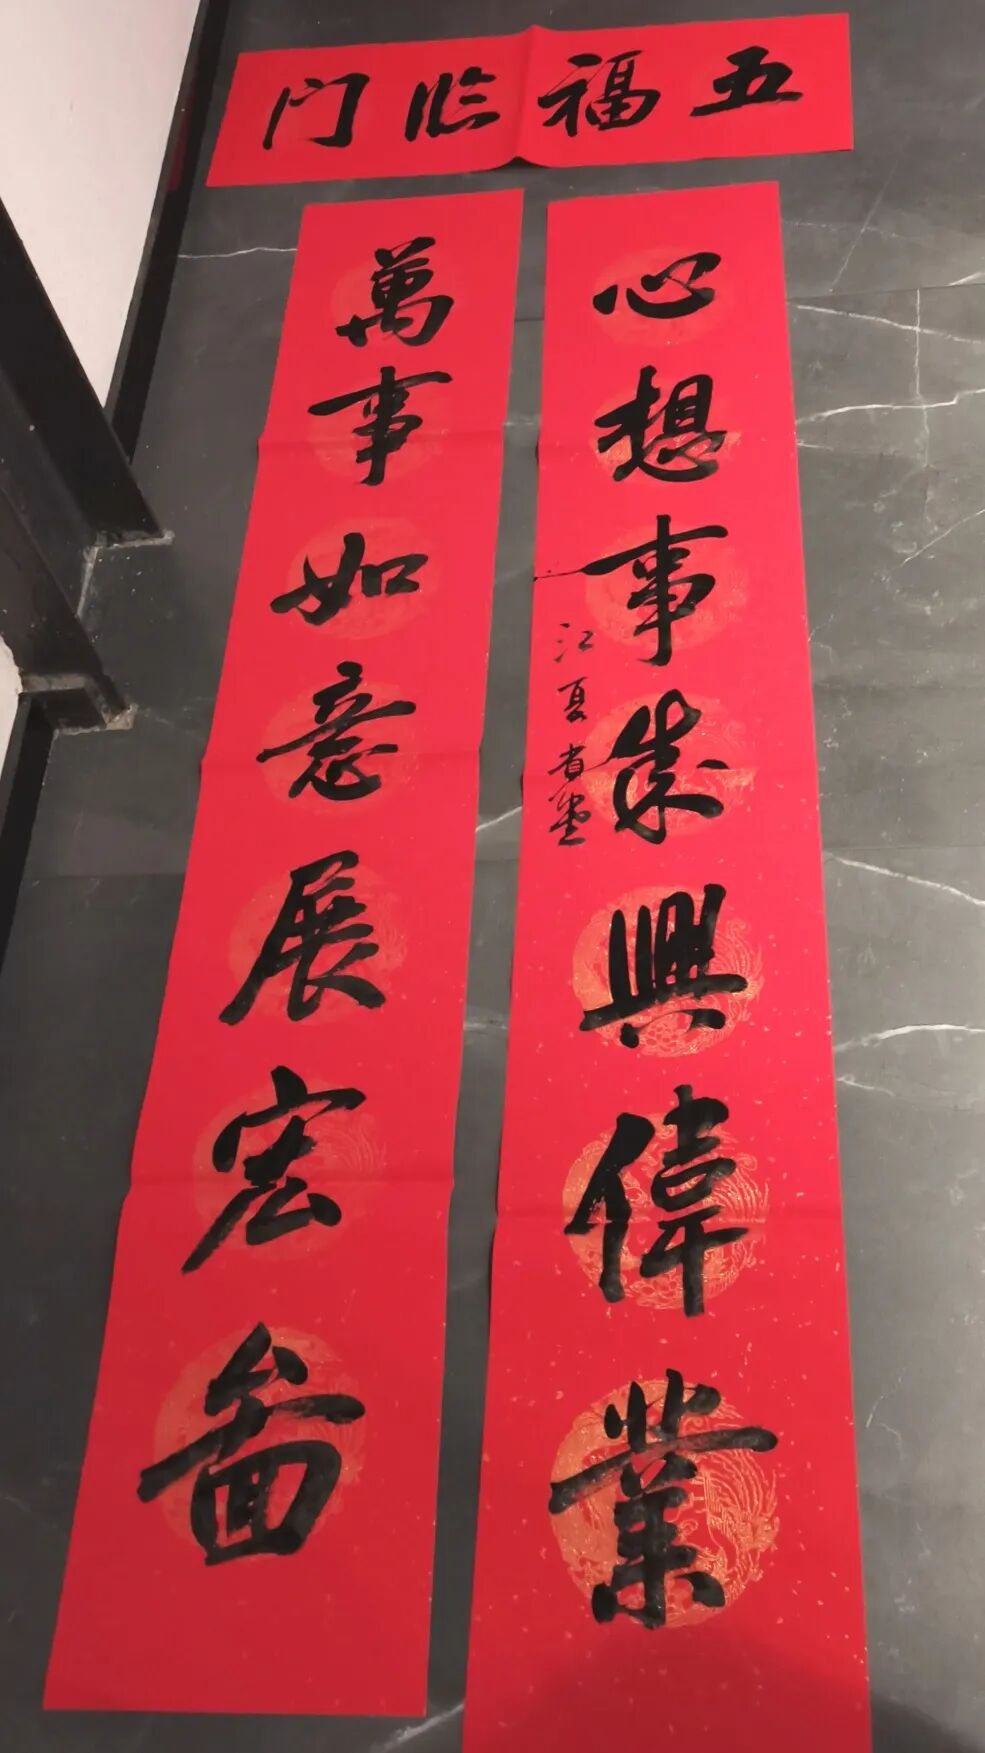 五福临门
心想事成興偉業
萬事如意展宏圖
江夏